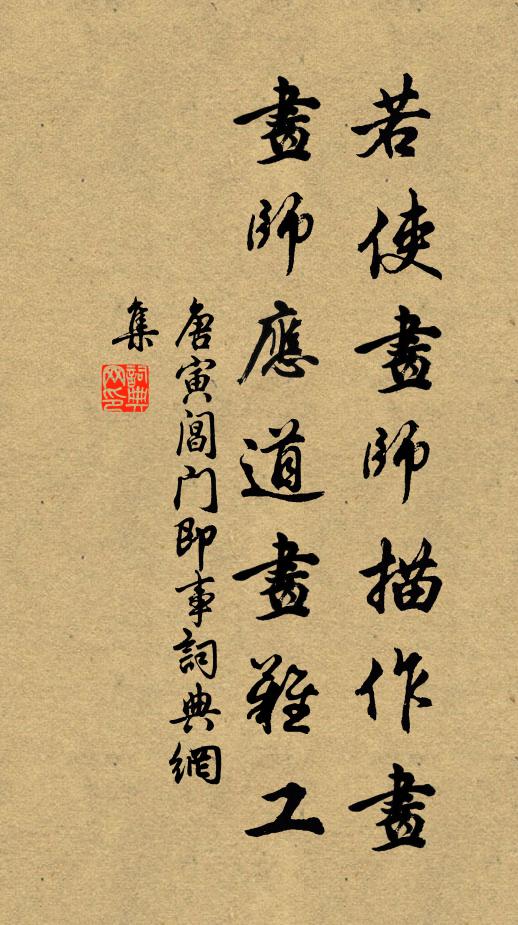 若使畫師描作畫
畫師應道畫難工
唐寅閶门即事詞典網
集
詞典網印